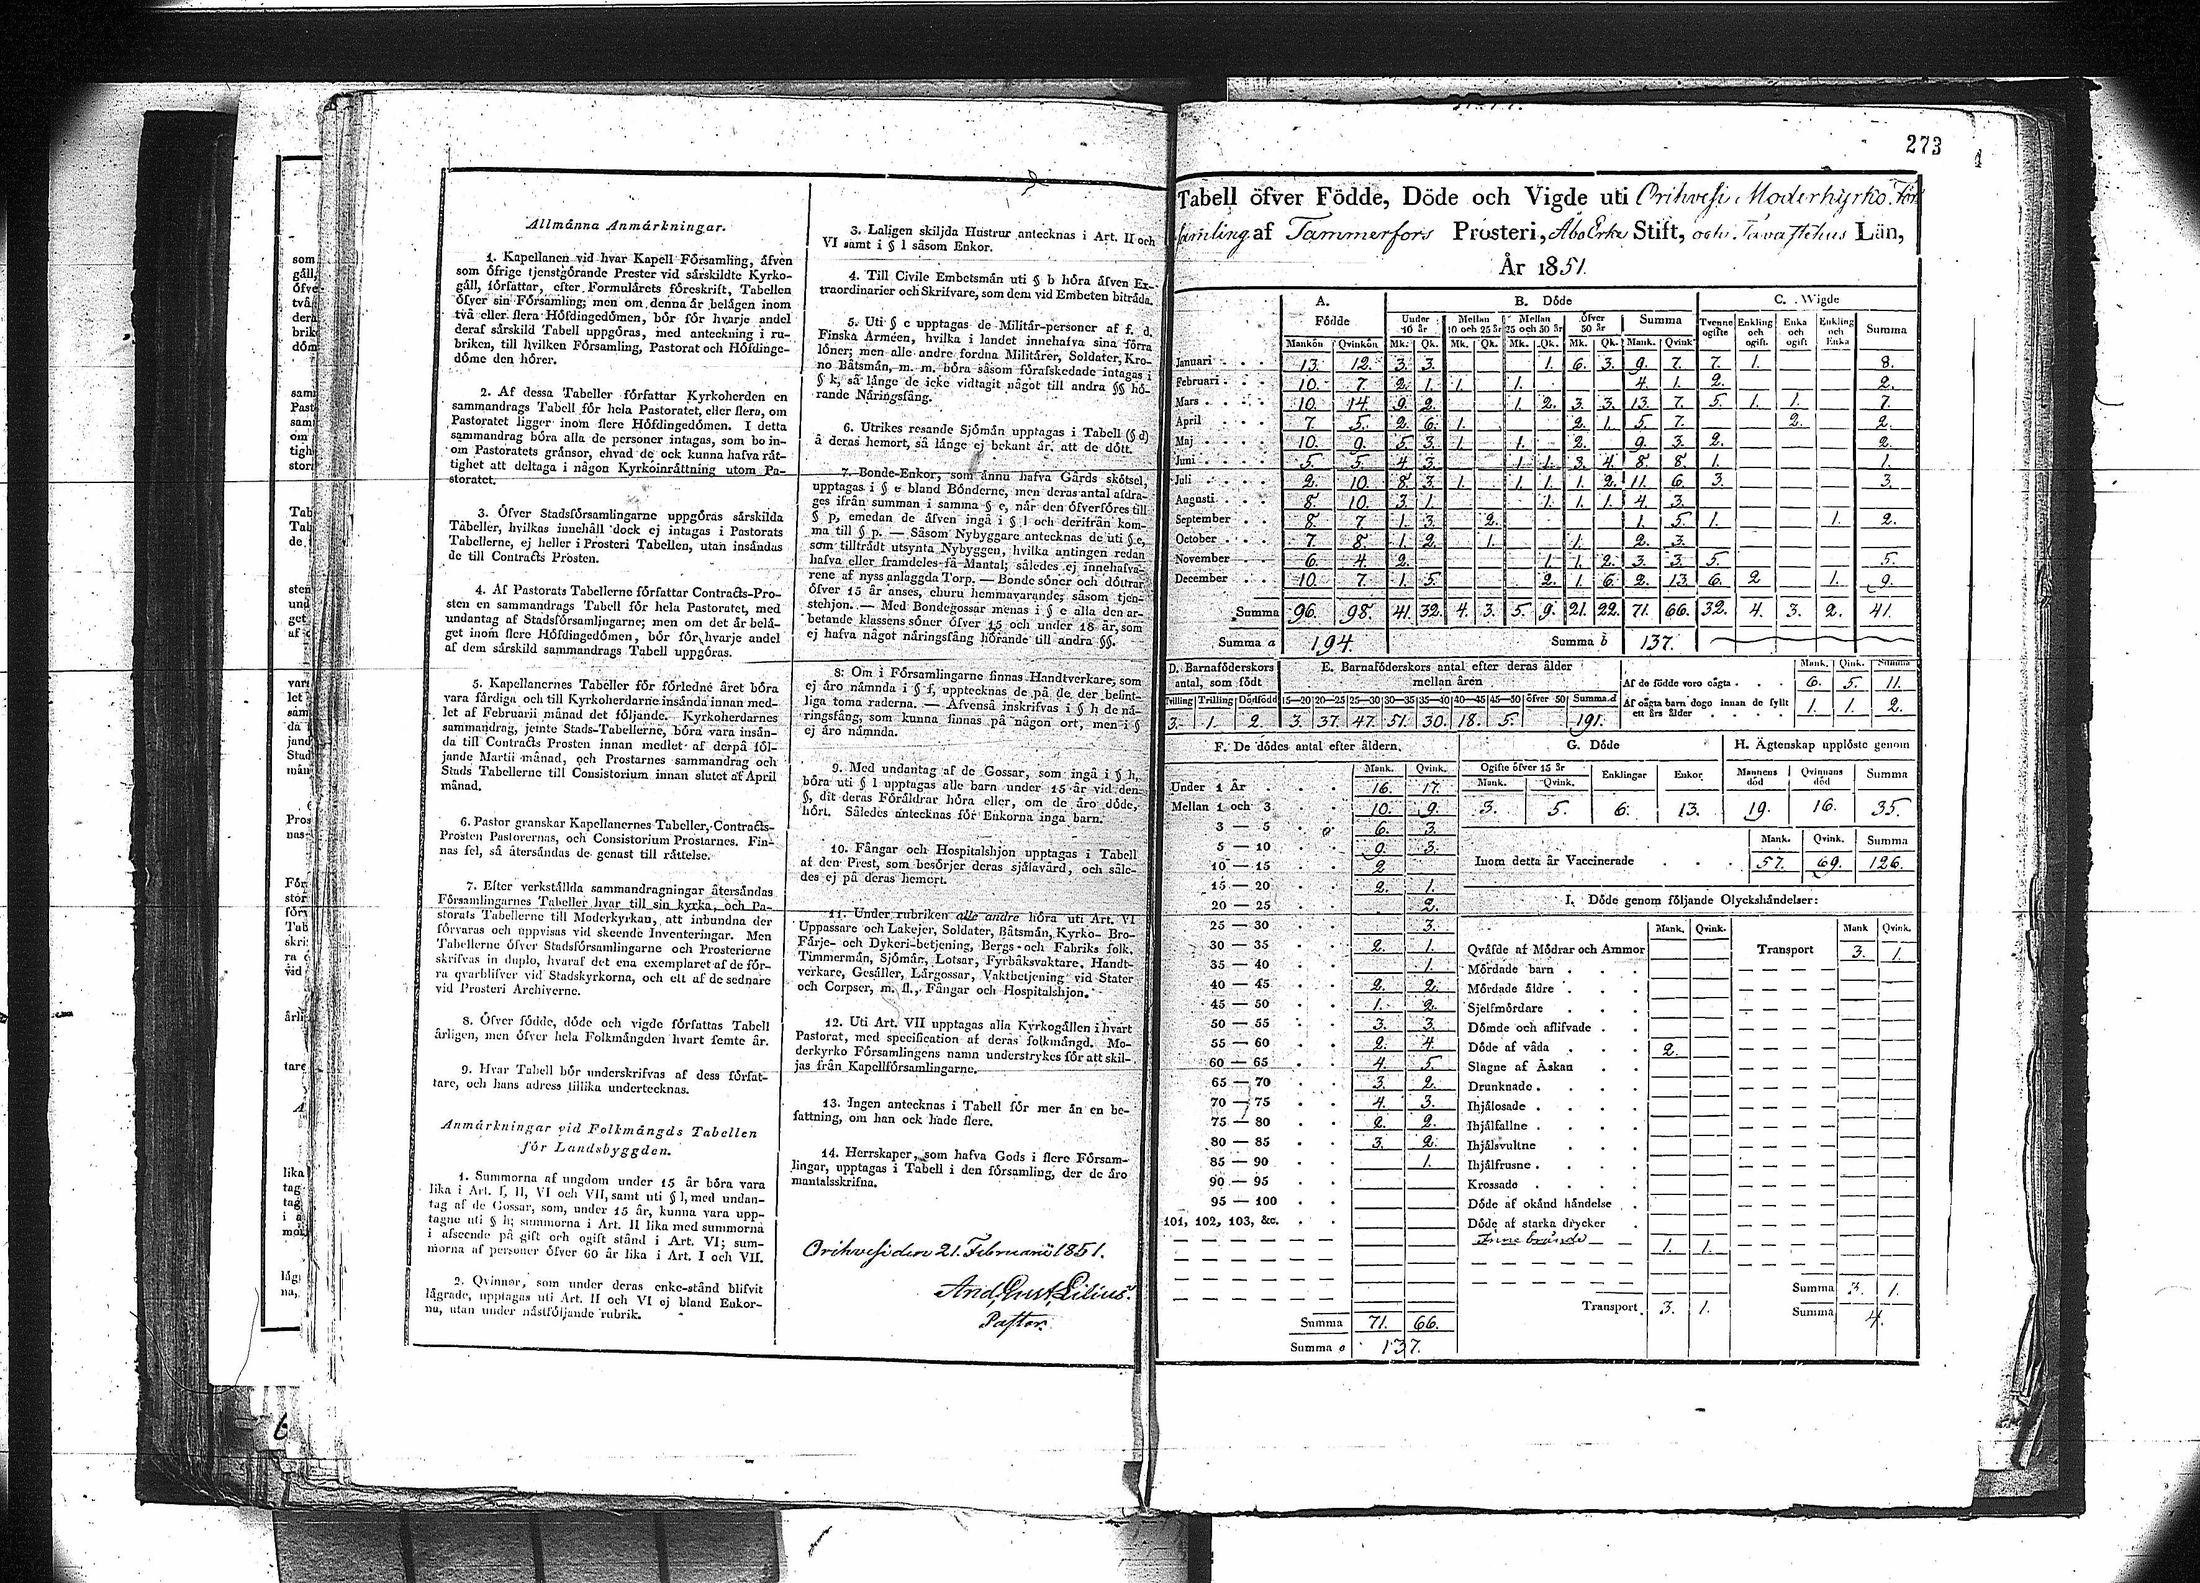 273
Allmänna Anmärkningar.
1. Kapellanen vid hvar Kapell Församling, äfven
som öfrige tjenstgörande Prester vid särskildte Kyrko-
gäll, författar, efter Formulärets föreskrift, Tabellen
öfver sin Församling; men om denna är belägen inom
två eller flera Höfdingedömen, bör för hvarje andel
deraf särskild Tabell uppgöras, med anteckning i ru-
briken, till hvilken Församling, Pastorat och Höfdinge-
döme den hörer.
2. Af dessa Tabeller författar Kyrkoherden en
sammandrags Tabell för hela Pastoratet, eller flera, om
Pastoratet ligger inom flere Höfdingedömen. I detta
sammandrag böra alla de personer intagas, som bo in-
om Pastoratets gränsor, ehvad de ock kunna hafva rät-
tighet att deltaga i någon Kyrkoinrättning utom Pa-
storatet.
3. Öfver Stadsförsamlingarne uppgöras särskilda
Tabeller, hvilkas innehåll dock ej intagas i Pastorats
Tabellerne, ej heller i Prosteri Tabellen, utan insändas
de till Contracts Prosten.
4. Af Pastorats Tabellerne författar Contracts-Pro-
sten en sammandrags Tabell för hela Pastoratet, med
undantag af Stadsförsamlingarne; men om det är belä-
get inom flere Höfdingedömen, bör för hvarje andel
af dem särskild sammandrags Tabell uppgöras.
5. Kapellanernes Tabeller för förledne året böra
vara färdiga och till Kyrkoherdarne insända innan med-
let af Februarii månad det följande. Kyrkoherdarnes
sammandrag, jemte Stads-Tabellerne, böra vara insän-
da till Contracts Prosten innan medlet af derpå föl-
jande Martii månad, och Prostarnes sammandrag och
Stads Tabellerne till Consistorium innan slutet af April
månad.
6. Pastor granskar Kapellanernes Tabeller, Contracts-
Prosten Pastorernas, och Consistorium Prostarnes. Fin-
nas fel, så återsändas de genast till rättelse.
7. Efter verkställda sammandragningar återsändas
Församlingarnes Tabeller hvar till sin kyrka, och Pa-
storats Tabellerne till Moderkyrkan, att inbundna der
förvaras och uppvisas vid skeende Inventeringar. Men
Tabellerne öfver Stadsförsamlingarne och Prosterierne
skrifvas in duplo, hvaraf det ena exemplaret af de för-
ra qvarblifver vid Stadskyrkorna, och ett af de sednare
vid Prosteri Archiverne.
8. Öfver födde, döde och vigde författas Tabell
årligen, men öfver hela Folkmängden hvart femte år.
9. Hvar Tabell bör underskrifvas af dess förfat-
tare, och hans adress tillika undertecknas.
Anmärkningar vid Folkmängds Tabellen
för Landsbyggden.
1. Summorna af ungdom under 15 år böra vara
lika i Art. I, II, VI och VII, samt uti § l, med undan-
tag af de Gossar, som, under 15 år, kunna vara upp-
tagne uti § h; summorna i Art. II lika med summorna
i afseende på gift och ogift stånd i Art. VI; sum-
morna af personer öfver 60 år lika i Art. I och VII.
2. Qvinnor, som under deras enke-stånd blifvit
lägrade, upptagas uti Art. II och VI ej bland Enkor-
na, utan under nästföljande rubrik.
3. Laligen skiljda Hustrur antecknas i Art. II och
VI samt i § l såsom Enkor.
4. Till Civile Embetsmän uti § b höra äfven Ex-
traordinarier och Skrifvare, som dem vid Embeten biträda.
5. Uti § c upptagas de Militär-personer af f. d.
Finska Arméen, hvilka i landet innehafva sina förra
löner; men alle andre fordna Militärer, Soldater, Kro-
no Båtsmän, m. m. böra såsom förafskedade intagas i
§ k, så länge de icke vidtagit något till andra §§ hö-
rande Näringsfång.
6. Utrikes resande Sjömän upptagas i Tabell (§ d)
å deras hemort, så länge ej bekant är, att de dött.
7. Bonde-Enkor, som ännu hafva Gårds skötsel,
upptagas i § e bland Bönderne, men deras antal afdra-
ges ifrån summan i samma § e, när den öfverföres till
§ p, emedan de äfven ingå i § l och derifrån kom-
ma till § p. — Såsom Nybyggare antecknas de uti § e,
som tillträdt utsynta Nybyggen, hvilka antingen redan
hafva eller framdeles få Mantal; således ej innehafva-
rene af nyss anlaggda Torp. — Bonde söner och döttrar
öfver 15 år anses, churu hemmavarande, såsom tjen-
stehjon. — Med Bondegossar menas i § e alla den ar-
betande klassens söner öfver 15 och under 18 år, som
ej hafva något näringsfång hörande till andra §§.
8. Om i Församlingarne finnas Handtverkare, som
ej äro nämnda i § f, upptecknas de på de der befint-
liga toma raderna. — Äfvenså inskrifvas i § h de nä-
ringsfång, som kunna finnas på någon ort, men i §
ej äro nämnda.
9. Med undantag af de Gossar, som ingå i § h,
böra uti § l upptagas alle barn under 15 år vid den
§, dit deras Föräldrar höra eller, om de äro döde,
hört. Således antecknas för Enkorna inga barn.
10. Fångar och Hospitalshjon upptagas i Tabell
af den Prest, som besörjer deras själavård, och såle-
des ej på deras hemort.
11. Under rubriken alle andre höra uti Art. VI
Uppassare och Lakejer, Soldater, Båtsmän, Kyrko- Bro-
Färje- och Dykeri-betjening, Bergs- och Fabriks folk,
Timmermän, Sjömän, Lotsar, Fyrbåksvaktare, Handt-
verkare, Gesäller, Lärgossar, Vaktbetjening vid Stater
och Corpser, m. fl., Fångar och Hospitalshjon.
12. Uti Art. VII upptagas alla Kyrkogällen i hvart
Pastorat, med specification af deras folkmängd. Mo-
derkyrko Församlingens namn understrykes för att skil-
jas från Kapellförsamlingarne.
13. Ingen antecknas i Tabell för mer än en be-
fattning, om han ock hade flere.
14. Herrskaper, som hafva Gods i flere Försam-
lingar, upptagas i Tabell i den församling, der de äro
mantalsskrifna.
Orihvesi den 21. Februarii 1851.
And. Gust. Lilius.
Pastor.
Tabell öfver Födde, Döde och Vigde uti Orihvesi Moderkyrko För
samling af Tammerfors Prosteri, Åbo Erke Stift, och Tavastehus Län,
År 1851.
A. B. Döde C. Wigde
Födde Under 10 år Mellan 10 och 25 år Mellan 25 och 50 år Öfver 50 år Summa Tvenne ogifte Enkling och ogift. Enka och ogift Enkling och Enka Summa
Mankön Qvinkön Mk. Qk. Mk. Qk. Mk. Qk. Mk. Qk. Mank. Qvink
Januari 13. 12. 3. 3. 1. 6. 3. 9. 7. 7. 1. 8.
Februari 10. 7. 2. 1. 1. 1. 4. 1. 2. 2.
Mars 10. 14. 9. 2. 1. 2. 3. 3. 13. 7. 5. 1. 1. 7.
April 7. 5. 2. 6. 1. 2. 1. 5. 7. 2. 2.
Maj 10. 9. 5. 3. 1. 1. 2. 9. 3. 2. 2.
Juni 5. 5. 4. 3. 1. 1. 3. 4. 8. 8. 1. 1.
Juli 2. 10. 8. 3. 1. 1. 1. 1. 2. 11. 6. 3. 3.
Augusti 8. 10. 3. 1. 1. 1. 1. 4. 3.
September 8. 7. 1. 3. 2. 1. 5. 1. 1. 2.
October 7. 8. 1. 2. 1. 1. 2. 3.
November 6. 4. 2. 1. 1. 2. 3. 3. 5. 5.
December 10. 7. 1. 5. 2. 1. 6. 2. 13. 6. 2 1. 9.
Summa 96. 98. 41. 32. 4. 3. 5. 9. 21. 22. 71. 66. 32. 4. 3. 2. 41.
Summa a 194. Summa b 137.
D. Barnaföderskors antal, som födt
Tvilling Trilling Dödfödd
3. 1. 2.
E. Barnaföderskors antal efter deras ålder mellan åren
15—20 20—25 25—30 30—35 35—40 40—45 45—50 öfver 50 Summa d
3. 37. 47. 51. 30. 18. 5. 191.
Mank. Qink. Summa
Af de födde voro oägta 6. 5. 11.
Af oägta barn dogo innan de fyllt ett års ålder 1. 1. 2.
F. De dödes antal efter åldern.
Mank. Qvink.
Under 1 År 16. 17.
Mellan 1 och 3 10. 9.
3 — 5 6. 3.
5 — 10 9. 3.
10 — 15 2
15 — 20 2. 1.
20 — 25 2.
25 — 30 3.
30 — 35 2. 1.
35 — 40 1.
40 — 45 2. 2.
45 — 50 1. 2.
50 — 55 3. 3.
55 — 60 2. 4.
60 — 65 4. 5.
65 — 70 3. 2.
70 — 75 4. 3.
75 — 80 2. 2.
80 — 85 3. 2.
85 — 90 1.
90 — 95
95 — 100
101, 102, 103, &c.
Summa 71. 66.
Summa c 137.
G. Döde
Ogifte öfver 15 år Enklingar Enkor
Mank. Qvink.
3. 5. 6. 13.
H. Ägtenskap upplöste genom
Mannens död Qvinnans död Summa
19. 16. 35.
Mank. Qvink. Summa
Inom detta år Vaccinerade 57. 69. 126.
I. Döde genom följande Olyckshändelser:
Mank. Qvink. Mank Qvink.
Qväfde af Mödrar och Ammor Transport 3. 1.
Mördade barn
Mördade äldre
Sjelfmördare
Dömde och aflifvade
Döde af våda 2.
Slagne af Åskan
Drunknade
Ihjälosade
Ihjälfallne
Ihjälsvultne
Ihjälfrusne
Krossade
Döde af okänd händelse
Döde af starka drycker
Innebrände 1. 1.
Summa 3. 1.
Transport 3. 1. Summa 4.